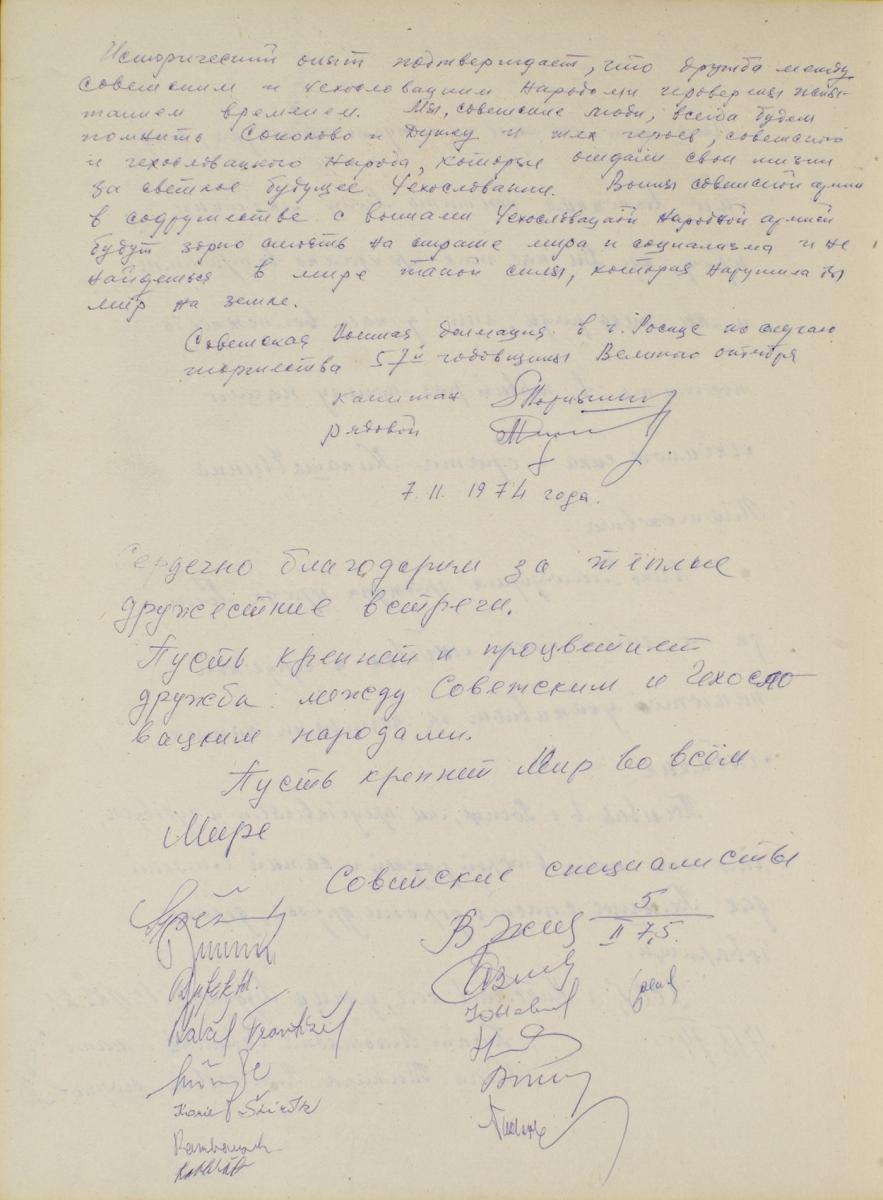 Исторический опыт подтверждает, что дружба между
советским и чехословацким народами проверена испы-
танием временем. Мы, советские люди, всегда будем
помнить Соколово и Дуклу и тех героев, советского
и чехословацкого народа, которые отдали свои жизни
за светлое будущее Чехословакии. Воины советской армии
в содружестве с воинами Чехословацкой народной армии
будут зорко стоять на страже мира и социализма и не
найдеться в мире такой силы, которая нарушила бы
мир на земле.
Советская Военная делегация в г. Росице по случаю
торжества 57й годовщины Великого октября
капитан
рядовой
7. 11. 1974 года.
Сердечно благодарим за тёплые
дружестние встречи.
Пусть крепнет и процветает
дружба между Советским и Чехосло-
вацким народами.
Пусть крепнет Мир во всём
Мире
Советские специалисты
5
II 75.
František
Karel